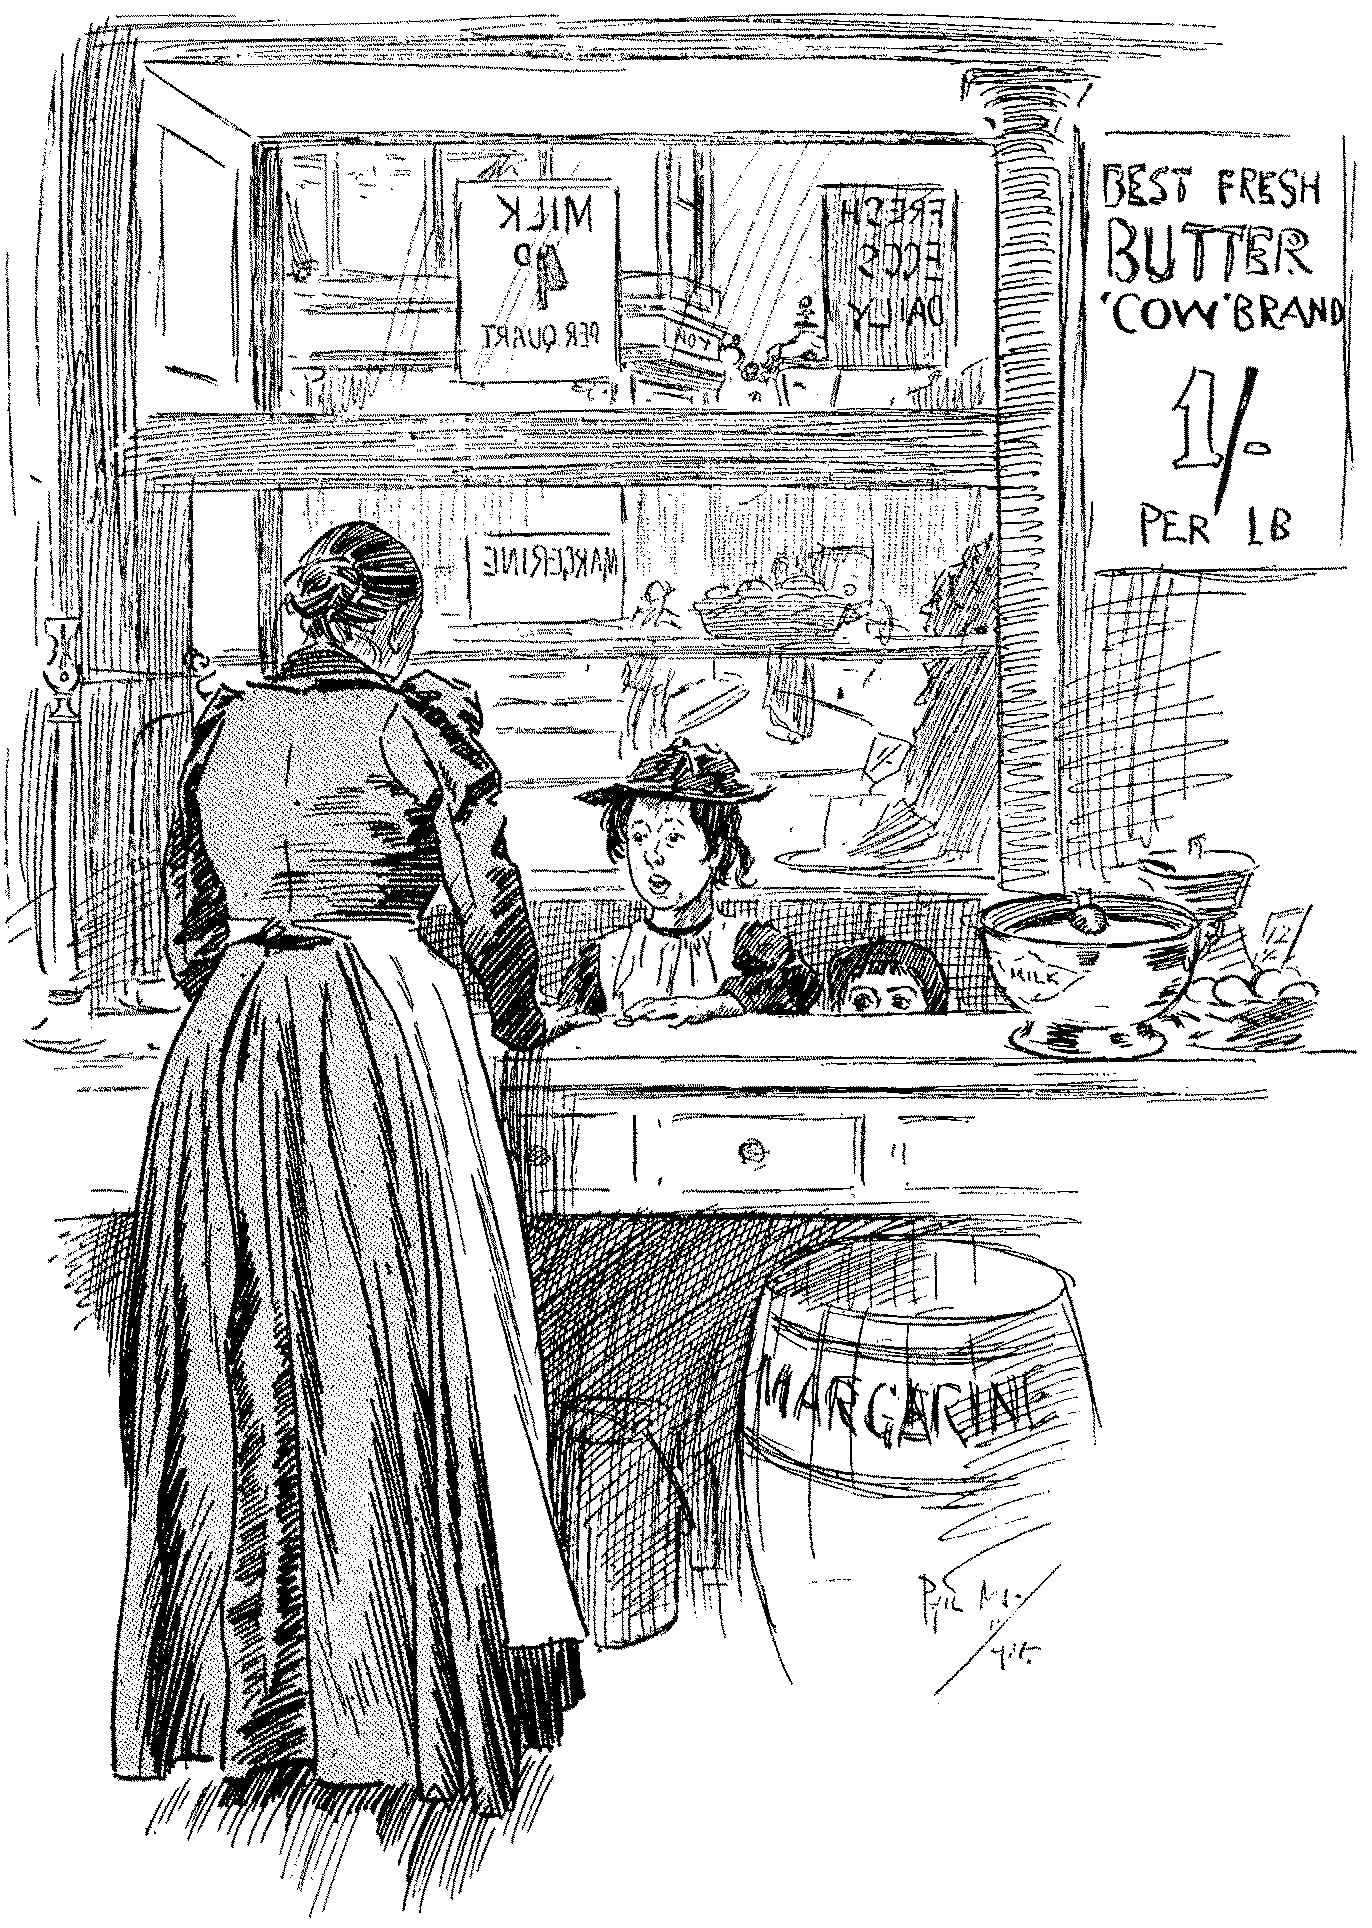 MILK
4D
PER QUART
FRESH
EGGS
DAILY
BEST FRESH
BUTTER
'COW' BRAND
1/-
PER LB
MARGERINE
MILK
MARGARINE